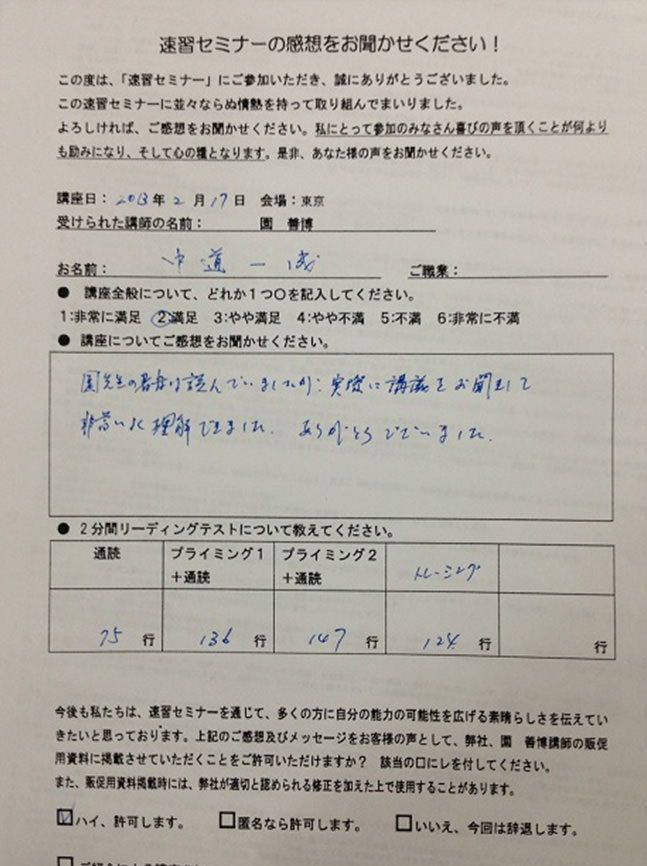 速習セミナーの感想をお聞かせください！
この度は、「速習セミナー」にご参加いただき、誠にありがとうございました。
この速習セミナーに並々ならぬ情熱を持って取り組んでまいりました。
よろしければ、ご感想をお聞かせください。私にとって参加のみなさん喜びの声を頂くことが何より
も励みになり、そして心の糧となります。是非、あなた様の声をお聞かせください。
講座日：2013年2月17日 会場：東京
受けられた講師の名前： 園 善博
お名前： 中道一 ご職業：
● 講座全般について、どれか１つ〇を記入してください。
1:非常に満足 2:満足 3:やや満足 4:やや不満 5:不満 6:非常に不満
● 講座についてご感想をお聞かせください。
園先生の著書は読んでいましたが、実際に講義をお聞きして
非常によく理解できました。ありがとうございました。
● ２分間リーディングテストについて教えてください。
通読 プライミング１ プライミング２ トレーシング
＋通読 ＋通読
75 行 136 行 147 行 124 行 行
今後も私たちは、速習セミナーを通じて、多くの方に自分の能力の可能性を広げる素晴らしさを伝えてい
きたいと思っております。上記のご感想及びメッセージをお客様の声として、弊社、園 善博講師の販促
用資料に掲載させていただくことをご許可いただけますか？ 該当の口にレを付してください。
また、販促用資料掲載時には、弊社が適切と認められる修正を加えた上で使用することがあります。
☑ハイ、許可します。 □匿名なら許可します。 □いいえ、今回は辞退します。